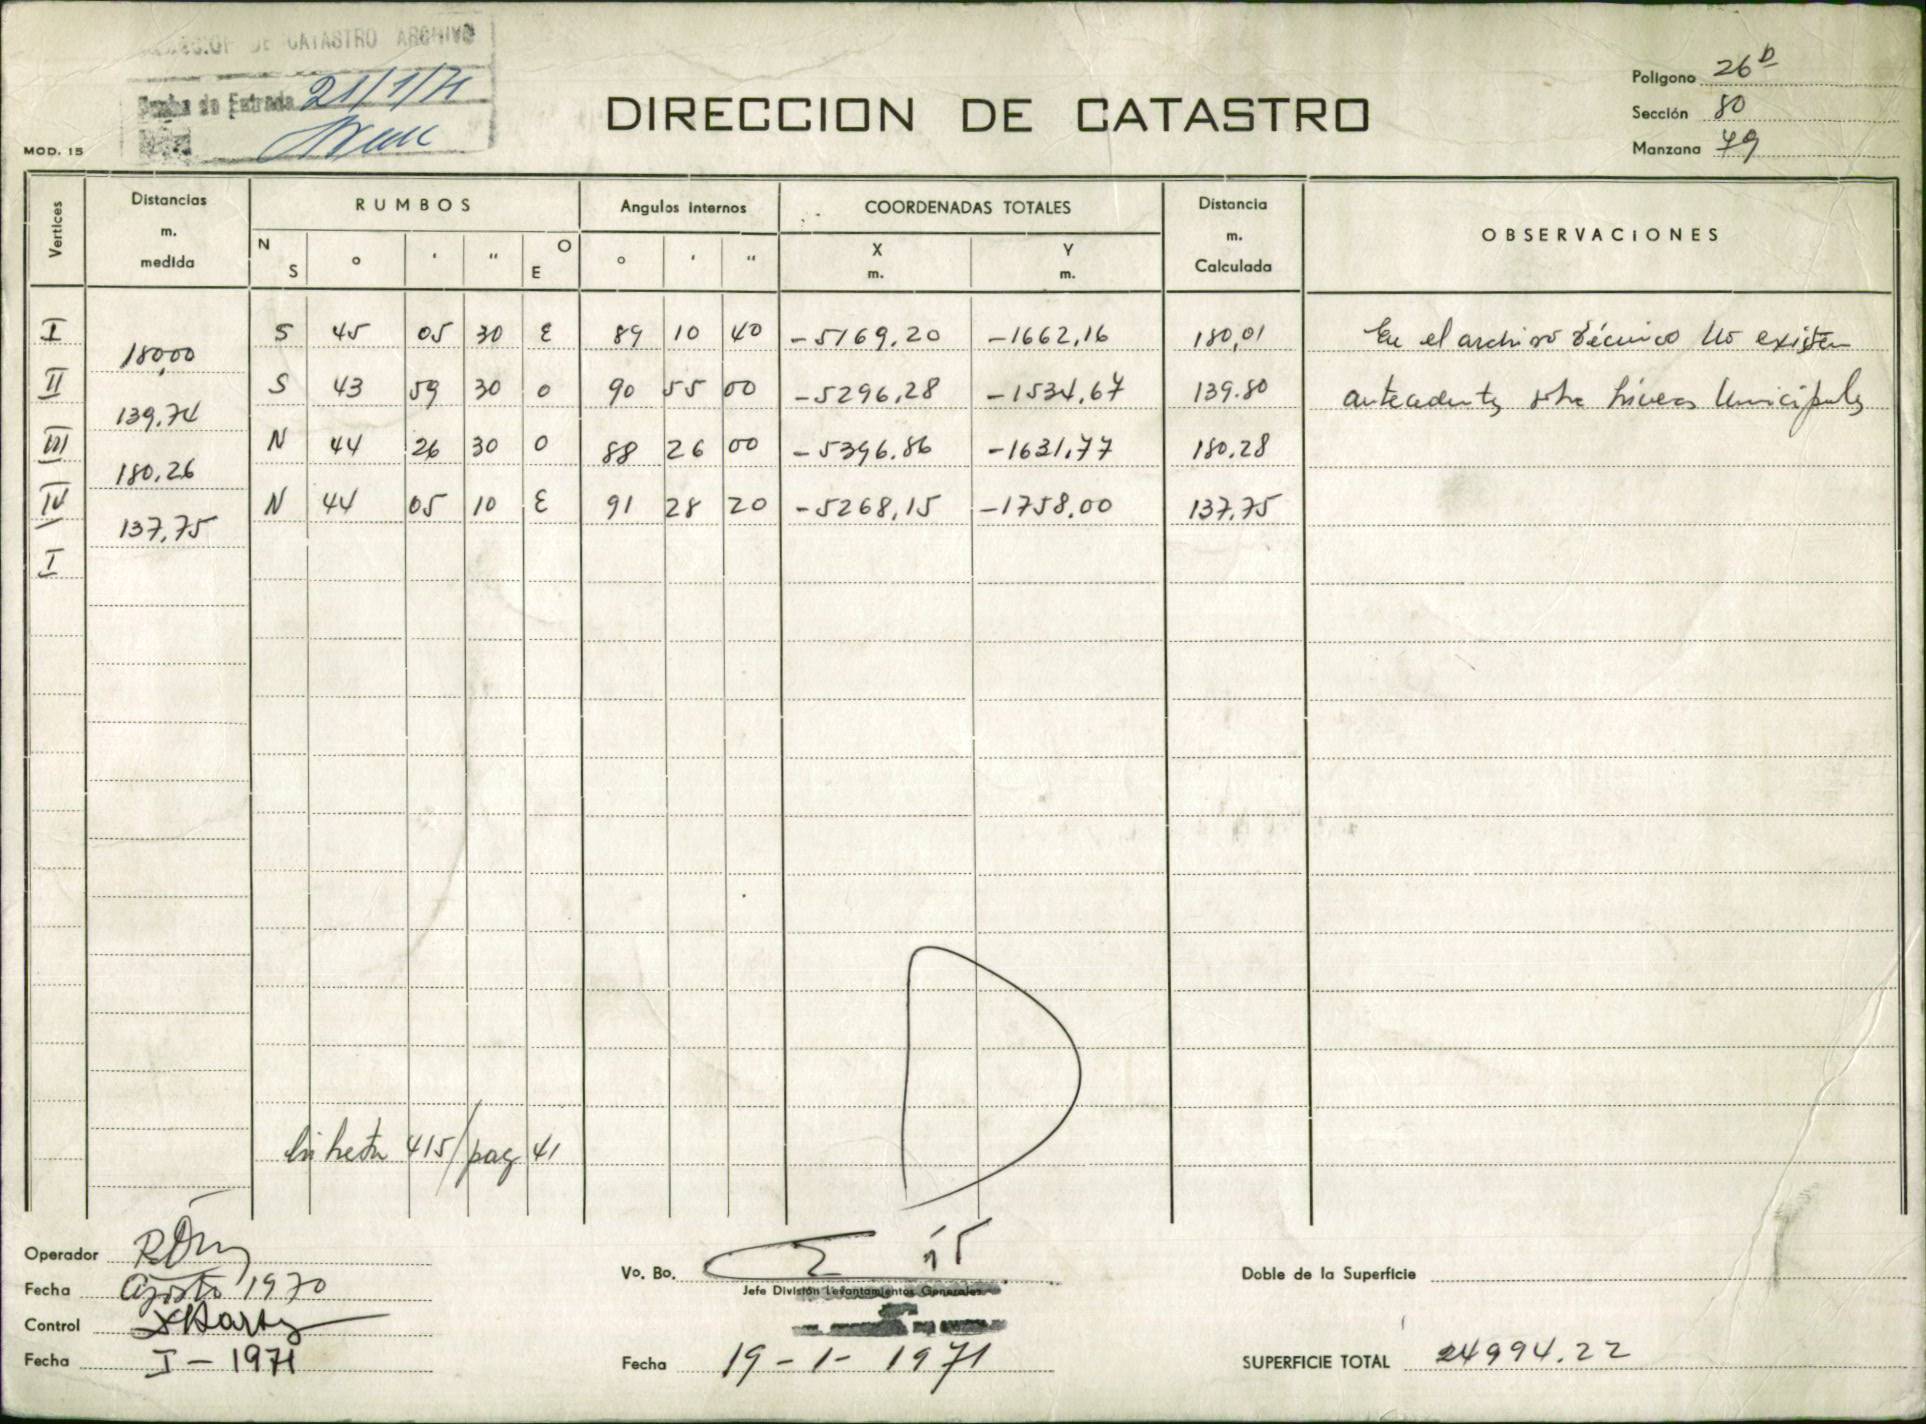 DE CATASTRO ARCHIVO
Fecha de Entrada 21/1/71
MOD. 15
DIRECCION DE CATASTRO
Poligono 26 D
Sección 80
Manzana 79
Vertices Distancias m. medida RUMBOS N S o ' " E O Angulos Internos o ' " COORDENADAS TOTALES X m. Y m. Distancia m. Calculada OBSERVACIONES
I S 45 05 30 E 89 10 40 -5169,20 -1662,16 180,01 En el archivo técnico No existen
180,00
II S 43 59 30 O 90 55 00 -5296,28 -1534,67 139.80 antecedentes sobre líneas Municipales
139,74
III N 44 26 30 O 88 26 00 -5396,86 -1631,77 180.28
180,26
IV N 44 05 10 E 91 28 20 -5268,15 -1758,00 137,75
137,75
I
libreta 415/pag 41
Operador
Fecha Agosto 1970
Control
Fecha I-1971
Vo. Bo.
Jefe División Levantamientos Generales
Fecha 19-1-1971
Doble de la Superficie
SUPERFICIE TOTAL 24994.22